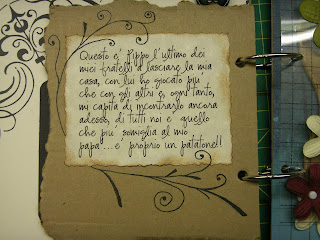 Questo e' Pippo l'ultimo dei
miei fratelli a lasciare la mia
casa, con lui ho giocato piu'
che con gli altri e, ogni tanto,
mi capita di incontrarlo ancora
adesso, di tutti noi e' quello
che piu' somiglia al mio
papa'...e' proprio un patatone!!